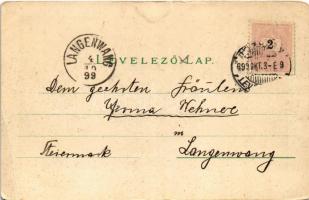 LANGENWANG
4
10
99
LEVELEZŐ-LAP.
2
899 OKT. 3 - E 9
Dem geehrten Fräulein
Irma Wehner
in
Steiermark
Langenwang